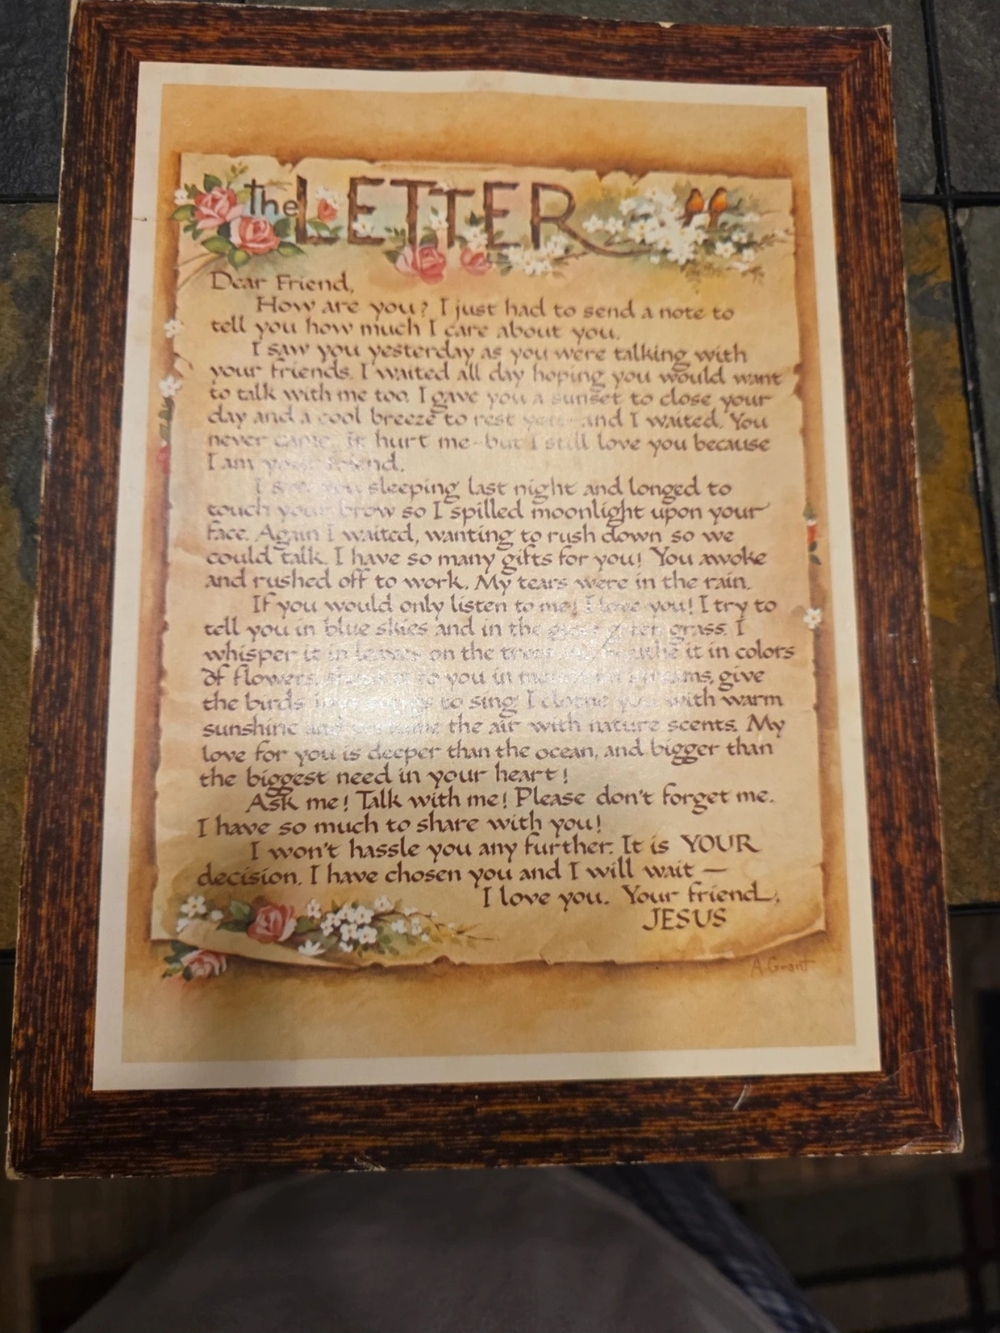 the LETTER
Dear Friend,
How are you? I just had to send a note to
tell you how much I care about you.
I saw you yesterday as you were talking with
your friends. I waited all day hoping you would want
to talk with me too. I gave you a sunset to close your
day and a cool breeze to rest you - and I waited. You
never came. It hurt me - but I still love you because
I am your friend.
I saw you sleeping last night and longed to
touch your brow so I spilled moonlight upon your
face. Again I waited, wanting to rush down so we
could talk. I have so many gifts for you! You awoke
and rushed off to work. My tears were in the rain.
If you would only listen to me! I love you! I try to
tell you in blue skies and in the green grass. I
whisper it in leaves on the trees and breathe it in colors
of flowers, to you in mountain streams, give
the birds to sing. I clothe you with warm
sunshine and perfume the air with nature scents. My
love for you is deeper than the ocean, and bigger than
the biggest need in your heart!
Ask me! Talk with me! Please don't forget me.
I have so much to share with you!
I won't hassle you any further. It is YOUR
decision. I have chosen you and I will wait —
I love you. Your friend,
JESUS
A. Grant